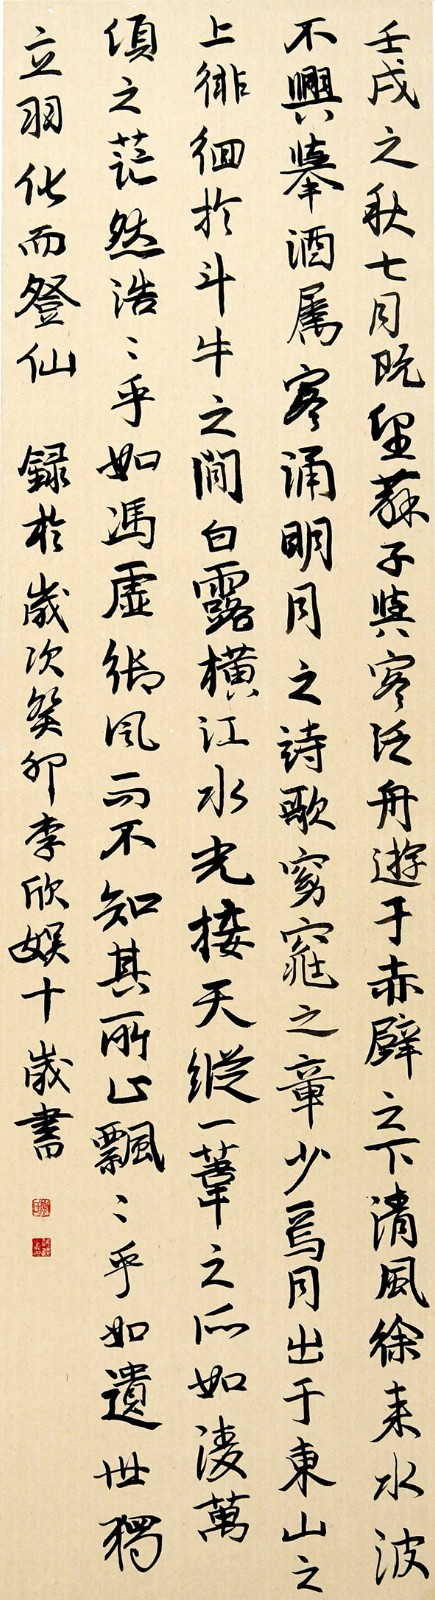 壬戌之秋七月既望蘇子與客泛舟遊于赤壁之下清風徐来水波
不興舉酒属客誦明月之詩歌窈窕之章少焉月出于東山之
上徘徊於斗牛之間白露橫江水光接天縱一葦之所如凌萬
頃之茫然浩〻乎如馮虛御風而不知其所止飄〻乎如遺世獨
立羽化而登仙 録於歲次癸卯李欣娱十歲書